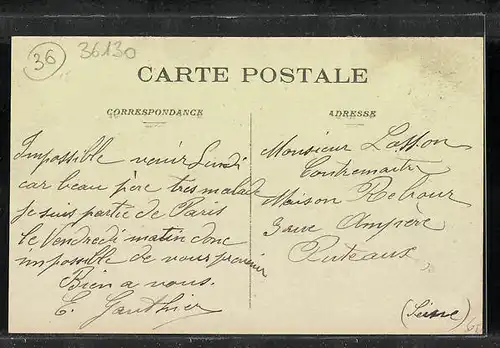 36
36130
CARTE POSTALE
CORRESPONDANCE
Impossible venir Lundi
car beau père tres malade
je suis partie de Paris
le Vendredi matin donc
impossible de vous prevenir
Bien a vous.
E. Gauthier
ADRESSE
Monsieur Lasson
Contremaitre
Maison Rebour
3 rue Ampere
Puteaux
(Seine)